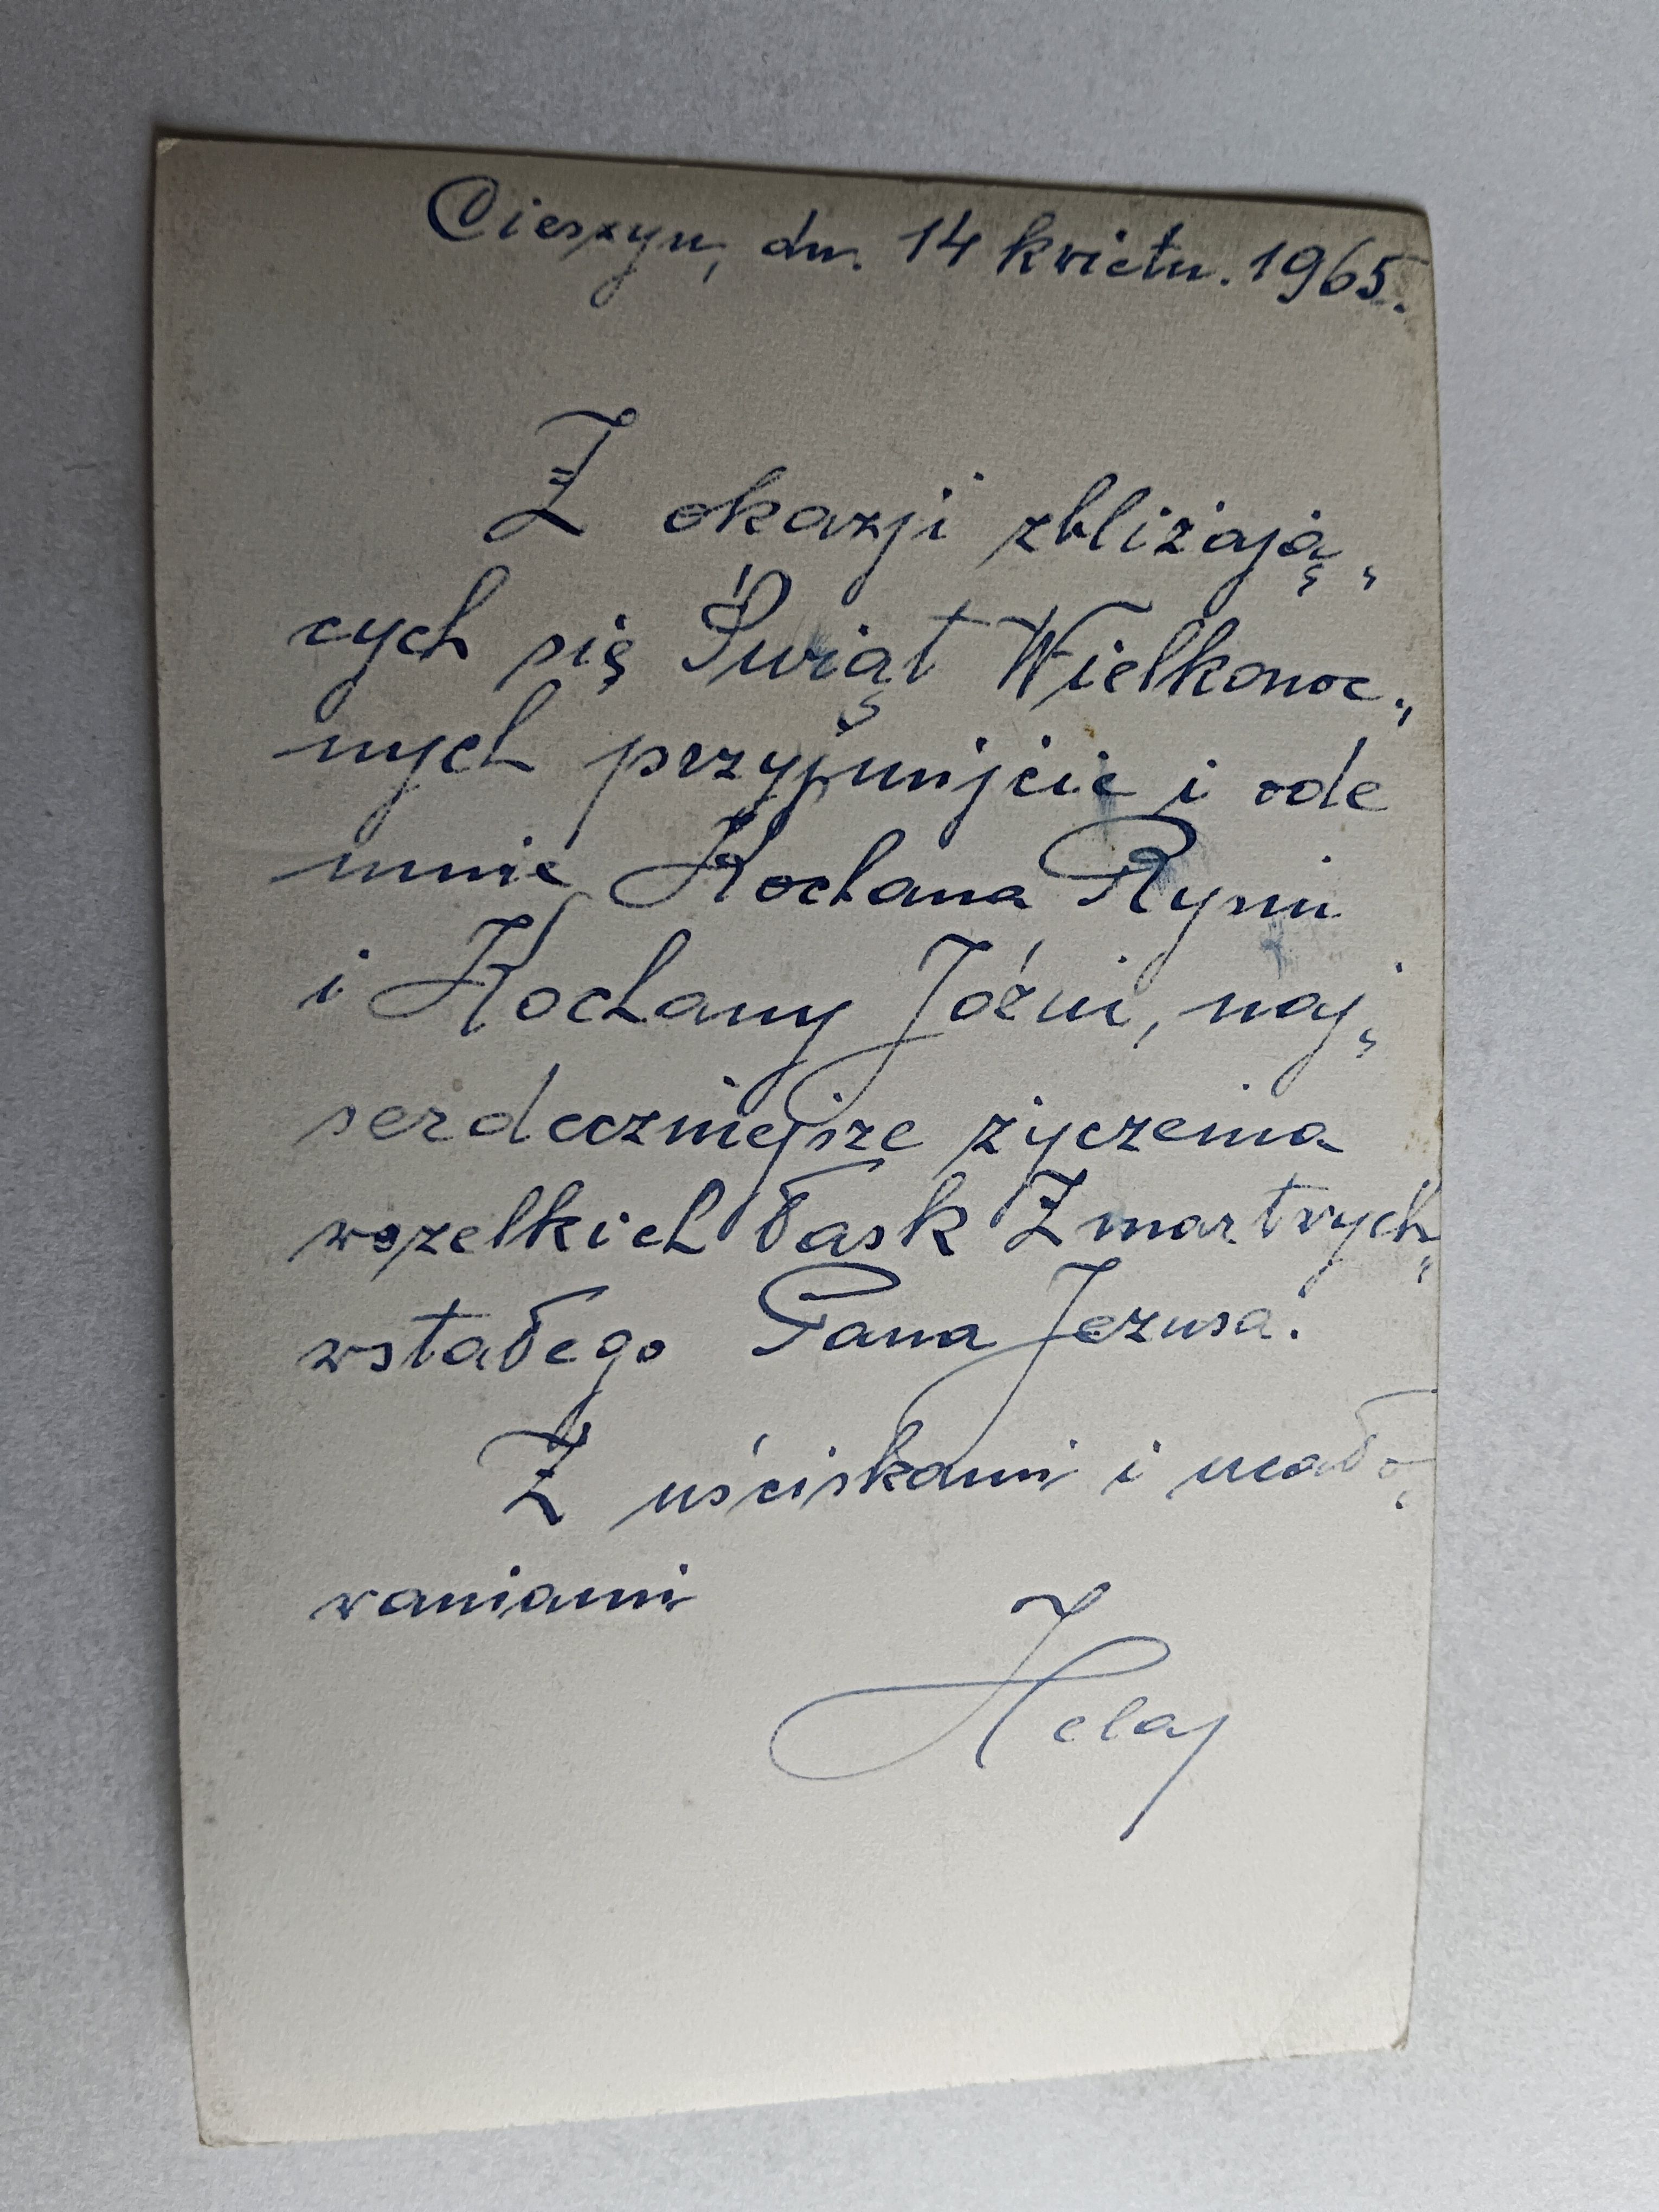 Cieszyn, dn. 14 kwietn. 1965.
Z okazji zbliżają„
cych się Świąt Wielkanoc„
nych przyjmijcie i ode
mnie Kochana Rysiu
i Kochany Józiu, naj„
serdeczniejsze życzenia
wszelkich łask Zmartwych„
wstałego Pana Jezusa.
Z uściskami i ucało„
waniami
Hela